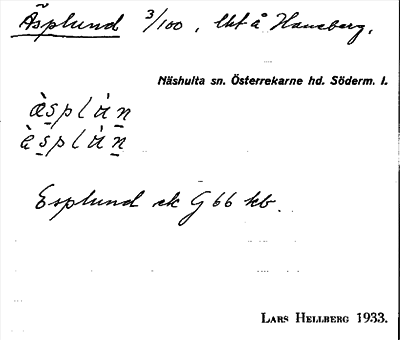 Äsplund 3/100, lht å Hansberg.
Näshulta sn. Österrekarne hd. Söderm. l.
àsplùn
èsplùn
Esplund ek G66 kb.
LARS HELLBERG 1933.